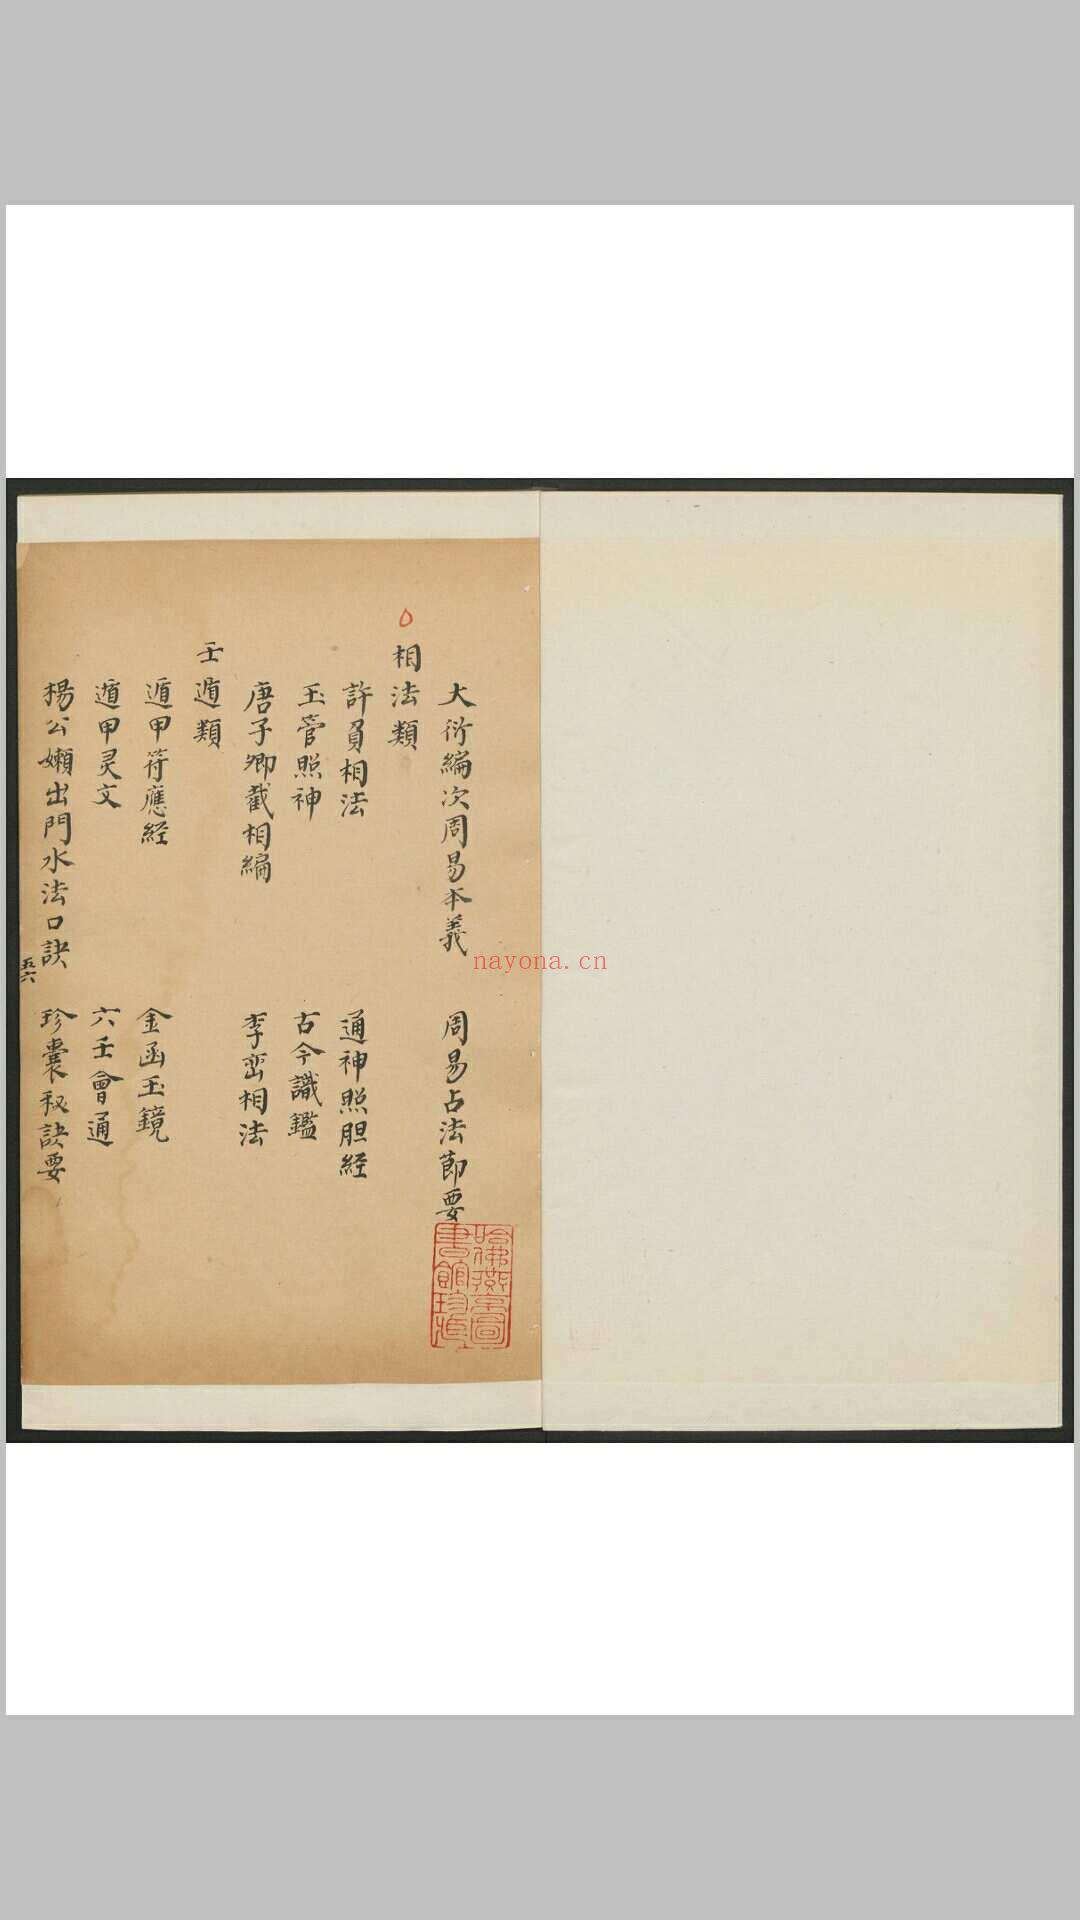 大衍編次周易本義　周易占法節要
相法類
許負相法　通神照胆経
玉管照神　古今識鑑
唐子卿截相編　李峦相法
壬遁類
遁甲符應経　金函玉鏡
遁甲灵文　六壬會通
楊公嬾出門水法口訣　珍囊秘訣要
五六
哈佛燕京圖書館珍藏
nayona.cn